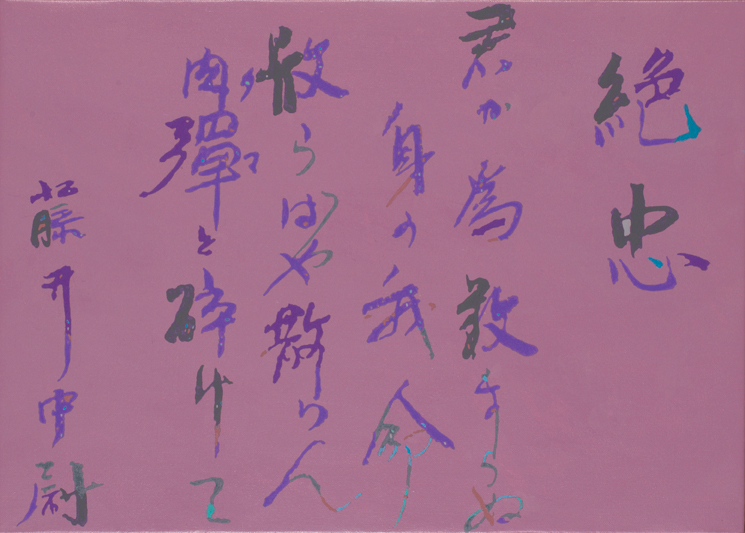 絶忠
君か為数ならぬ
身の我命
散らはや散らん
肉彈と砕けて
タマ
藤井中尉